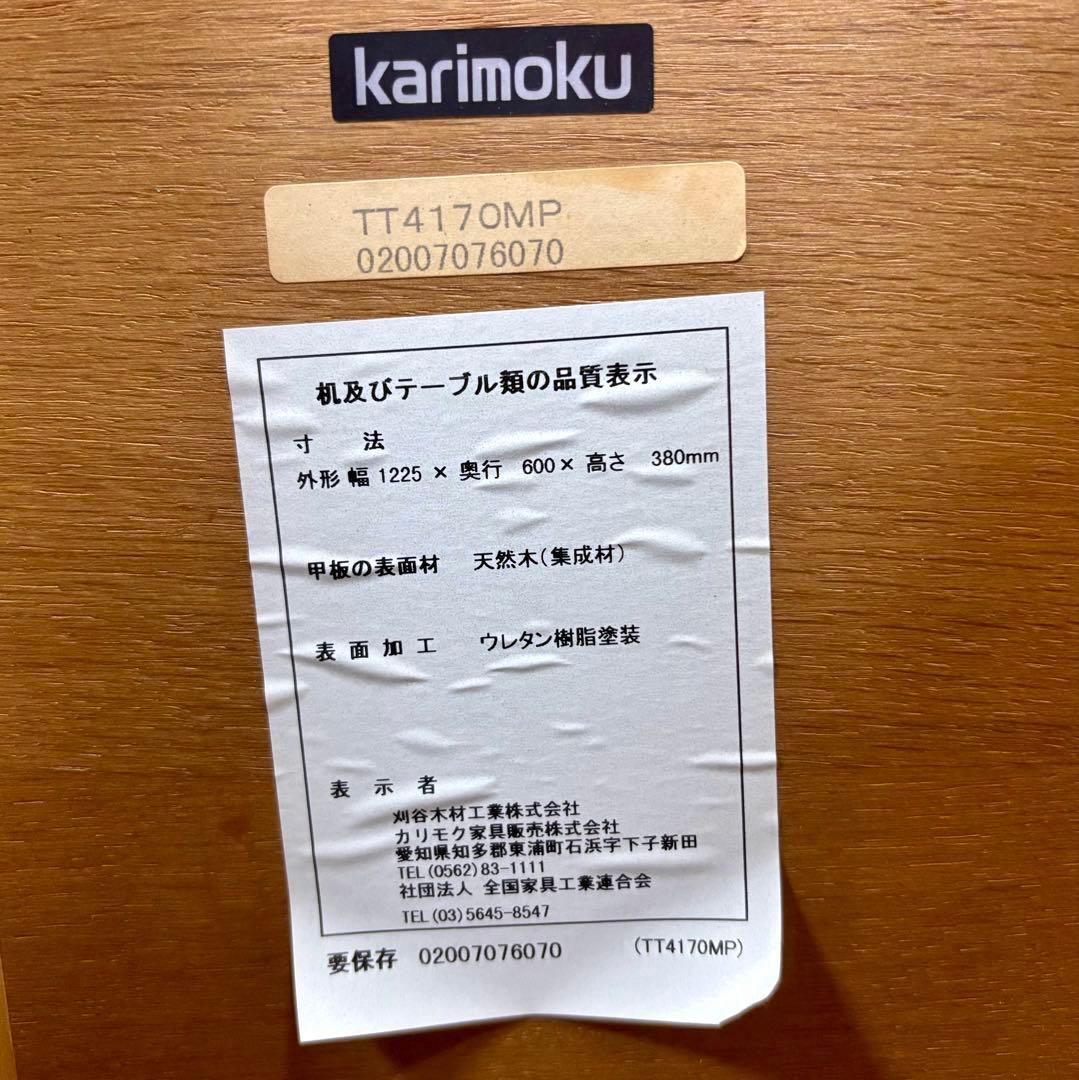 karimoku
TT4170MP
02007076070
机及びテーブル類の品質表示
寸　法
外形 幅 1225 × 奥行 600× 高さ 380mm
甲板の表面材 天然木(集成材)
表 面 加 工 ウレタン樹脂塗装
表 示 者
刈谷木材工業株式会社
カリモク家具販売株式会社
愛知県知多郡東浦町石浜字下子新田
TEL(0562)83-1111
社団法人 全国家具工業連合会
TEL(03)5645-8547
要保存 02007076070 (TT4170MP)